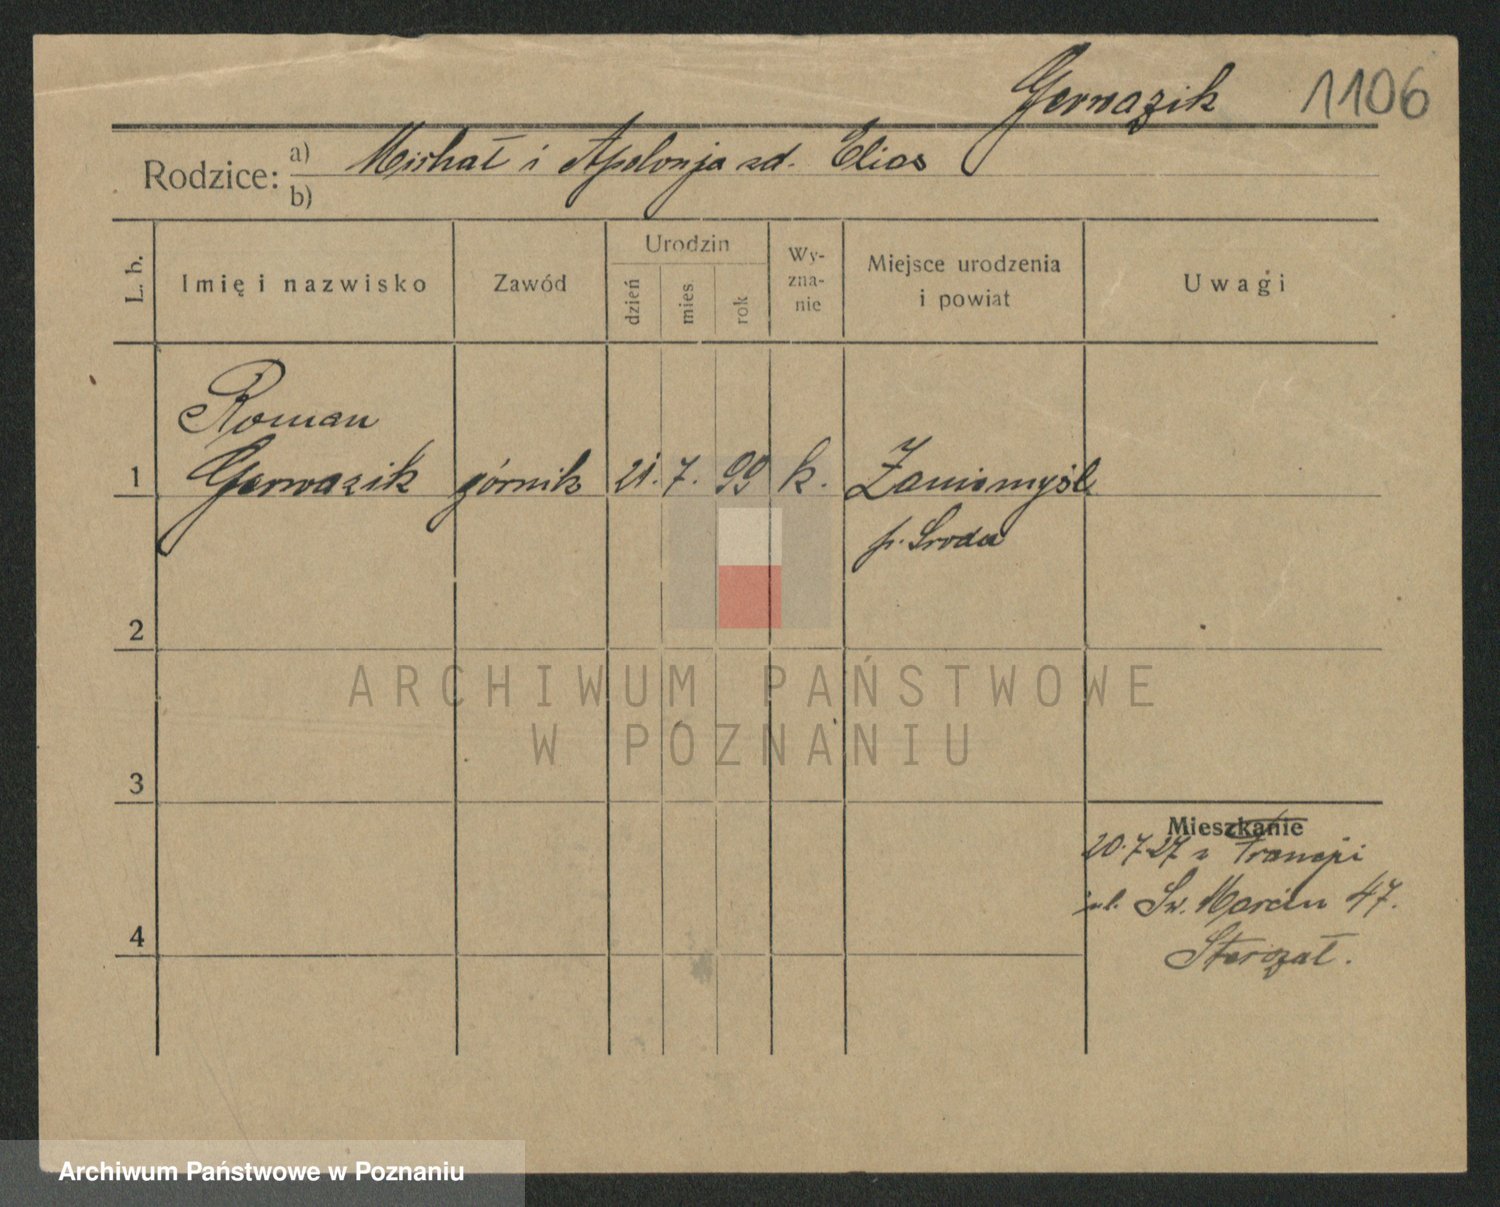 Gerwazik 1106
Rodzice: a) Michał i Apolonja zd. Elias
b)
L. b.
Imię i nazwisko
Zawód
Urodzin
dzień
mies
rok
Wy-
zna-
nie
Miejsce urodzenia
i powiat
Uwagi
Roman
1 Gerwazik górnik 21. 7. 99 k. Zaniemyśl
p. Środa
2
3
4
ARCHIWUM PAŃSTWOWE
W POZNANIU
Mieszkanie
20.7.27 z Francji
ul. Św. Marcin 47.
Archiwum Państwowe w Poznaniu